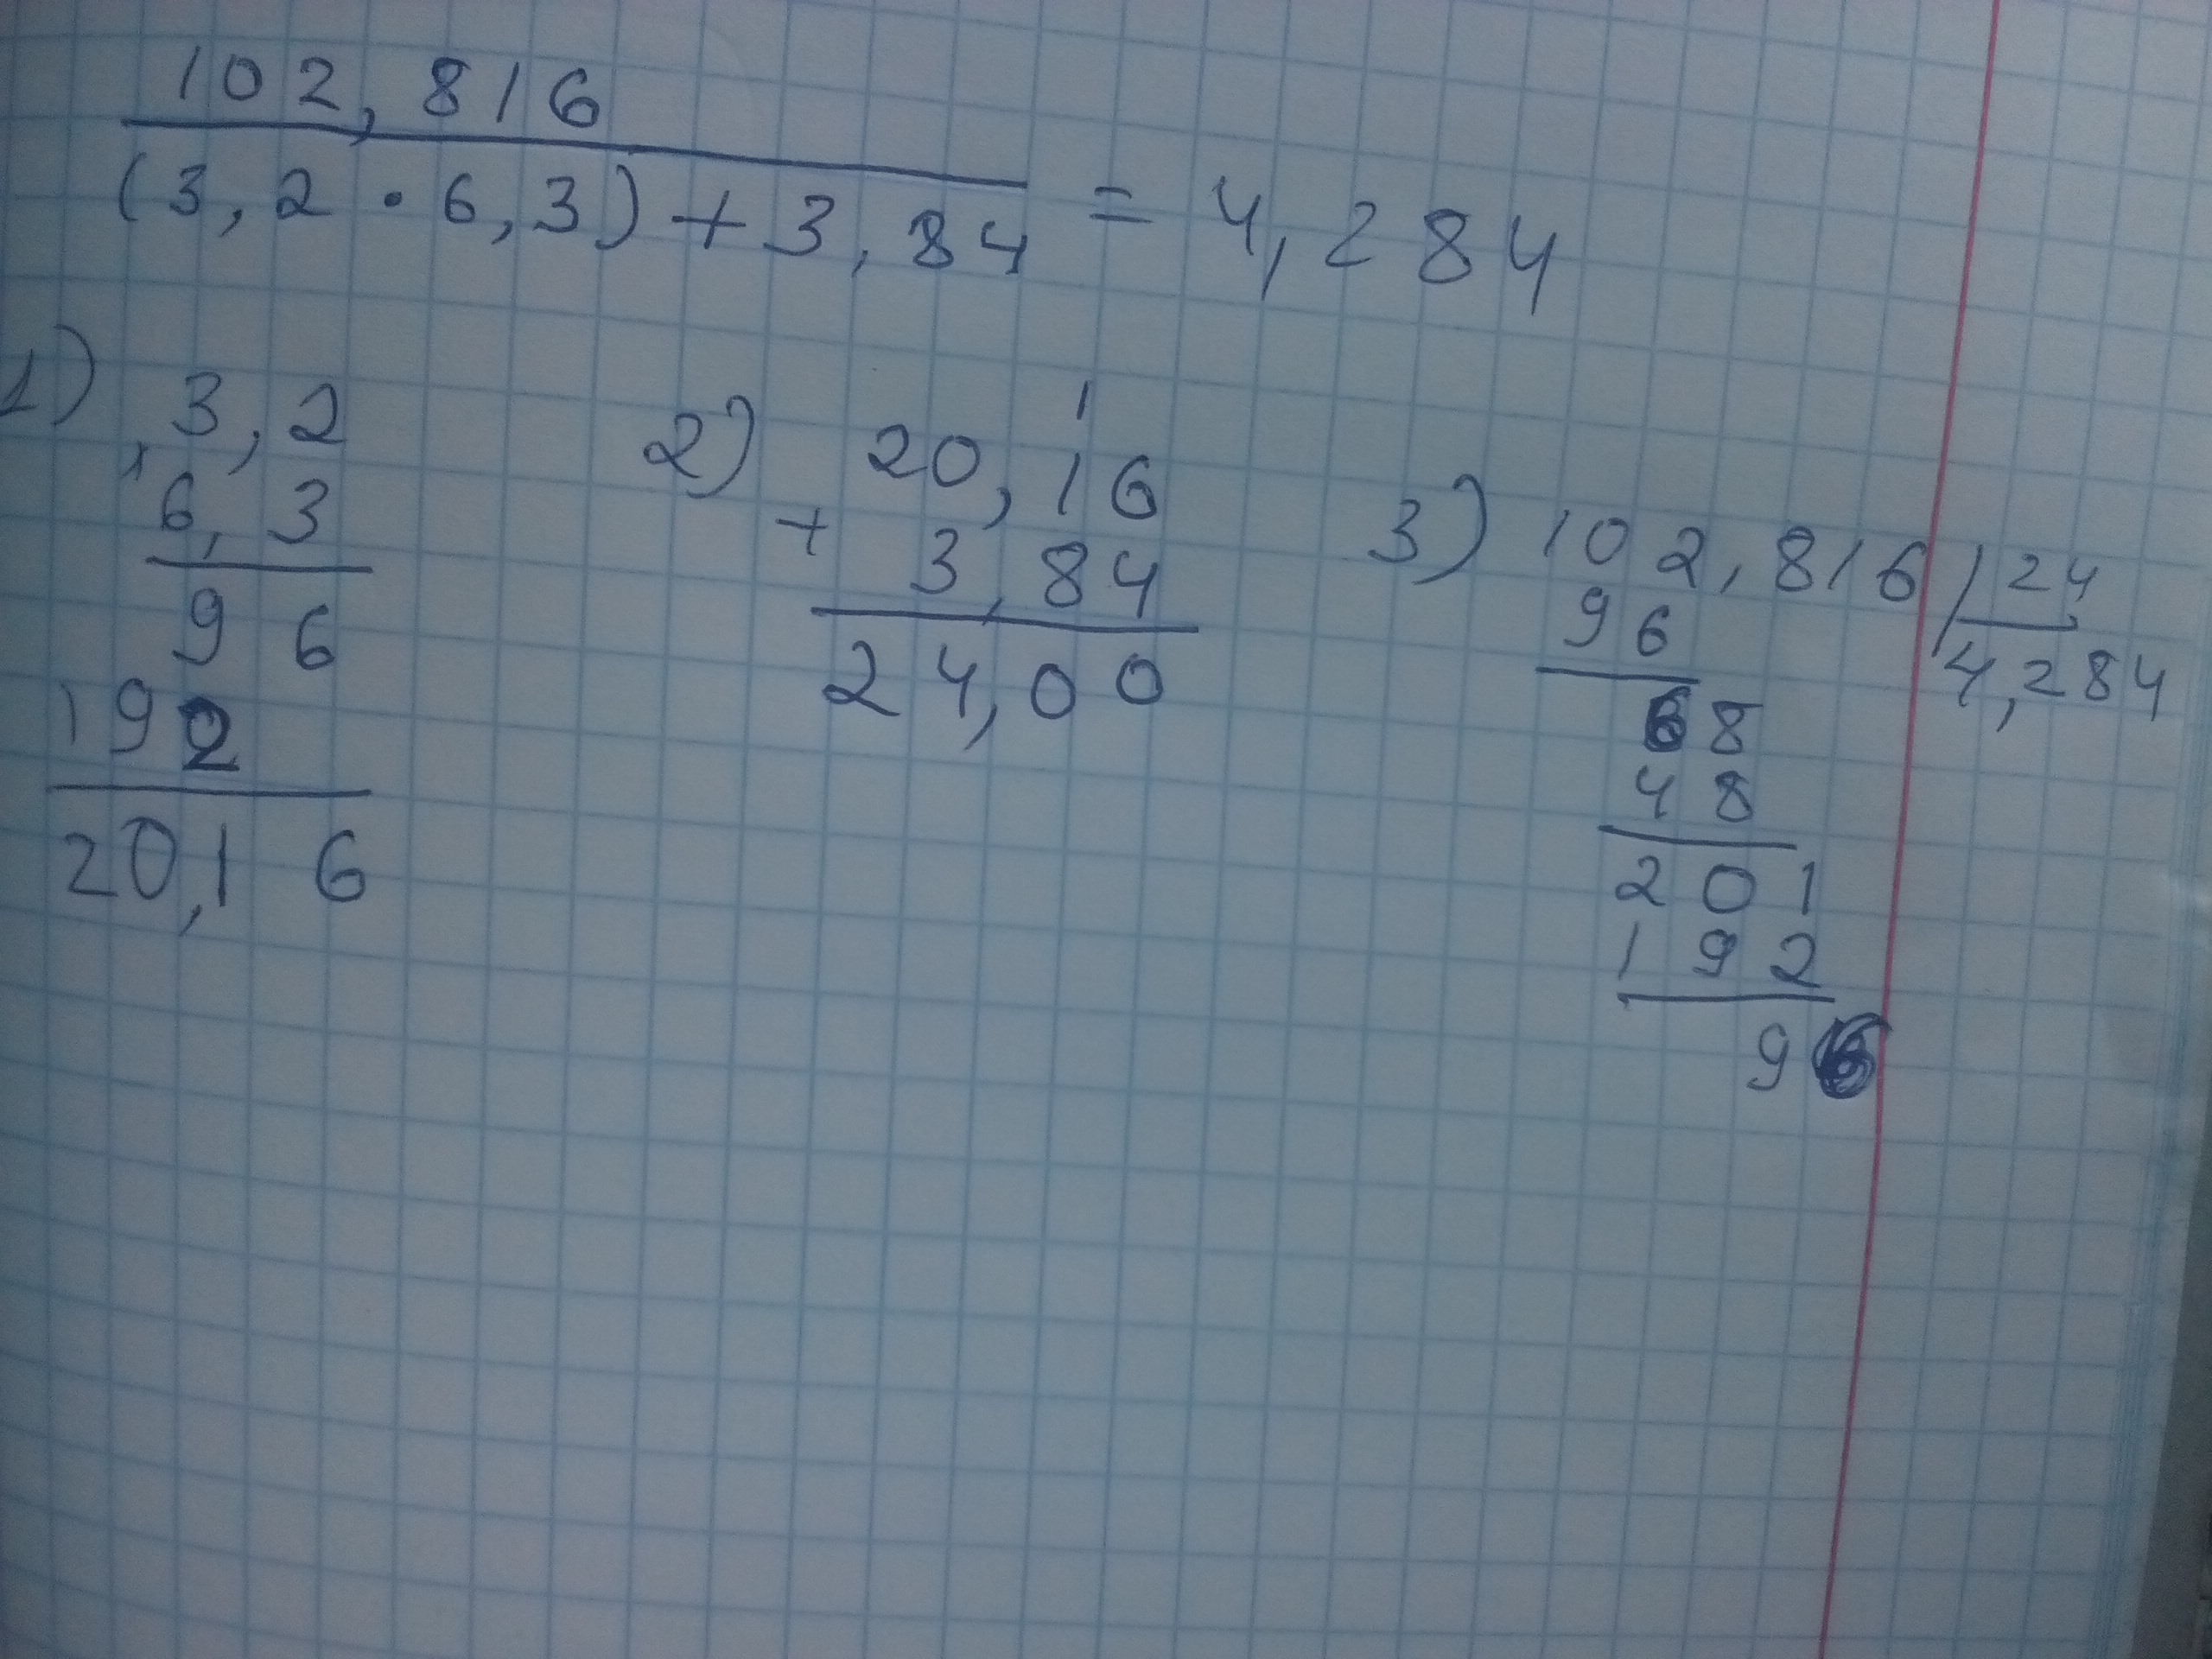 102,816
(3,2 · 6,3) + 3,84 = 4,284
1) 3,2
× 6,3
96
192
20,16
2) 1
20,16
+ 3,84
24,00
3) 102,816 | 24
96 4,284
68
48
201
192
96